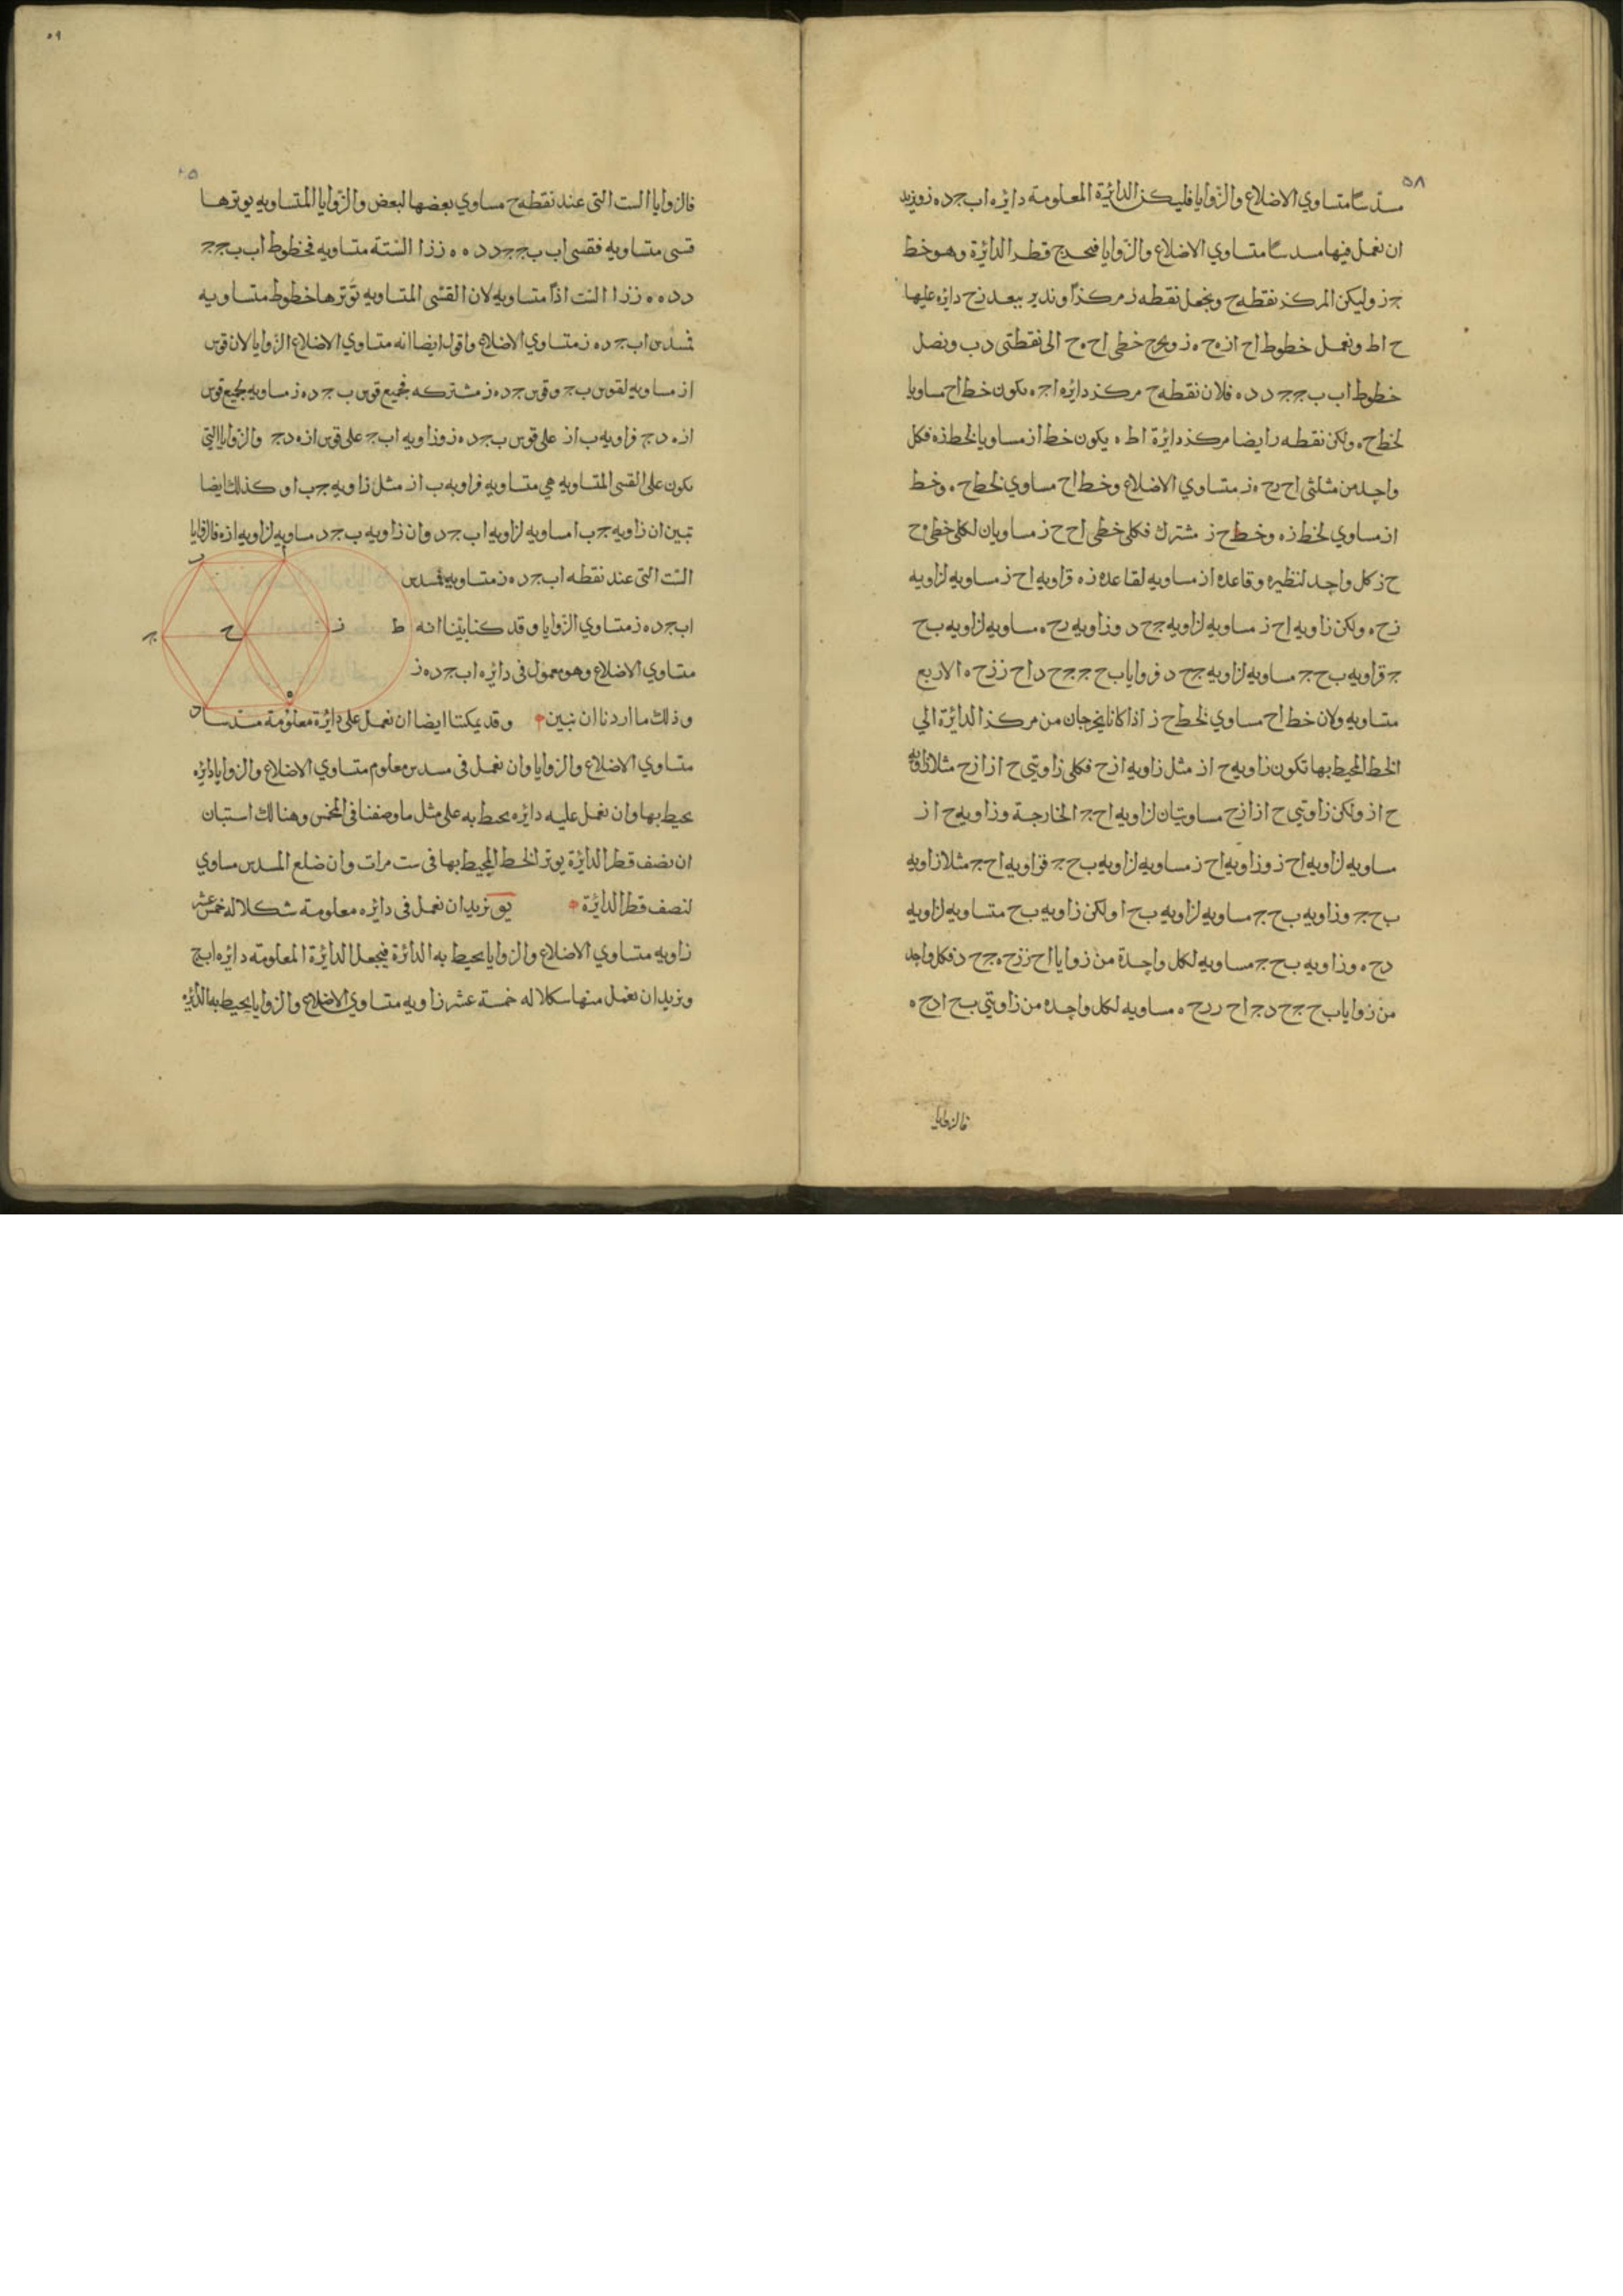 ٥٨
مسدسا متساوي الاضلاع والزوايا فليكن الدائرة المعلومة دائره ابجده ز ونريد
ان نعمل فيها مسدسا متساوي الاضلاع والزوايا فنخرج قطر الدائرة وهو خط
جز وليكن المركز نقطه ح ونجعل نقطه ز مركزا وندير ببعد زح دائره عليها
ح اط ونعمل خطوط اح از هح هز ونخرج خطى اح هح الى نقطتى د ب ونصل
خطوط اب بج جد ده فلان نقطه ح مركز دائره اجه يكون خط اح مساويا
لخط ح ه ولكن نقطه ز ايضا مركز دائرة اط ه يكون خط از مساويا لخط زه فكل
واحد من مثلثى اح ز ح ه ز متساوي الاضلاع وخط اح مساوي لخط ح ه وخط
از مساوي لخط زه وخط ح ز مشترك فكلى خطى اح ح ز مساويان لكلى خطى ه ح
ح ز كل واحد لنظيره وقاعده از مساويه لقاعده زه فزاويه اح ز مساويه لزاويه
زح ه ولكن زاويه اح ز مساويه لزاويه جح د وزاويه زح ه مساويه لزاويه بح
ج فزاويه بح ج مساويه لزاويه جح د فزوايا بح ج جح د اح ز زح ه الاربع
متساويه ولان خط اح مساوي لخط ح ز اذا كانا يخرجان من مركز الدائرة الي
الخط المحيط بها تكون زاويه ح از مثل زاويه ازح فكلى زاويتى ح از ازح مثلا زاويه
ح از ولكن زاويتي ح از ازح مساويتان لزاويه اح ج الخارجة وزاويه ح از
مساويه لزاويه اح ز وزاويه اح ز مساويه لزاويه بح ج فزاويه اح ج مثلا زاويه
بح ج وزاويه بح ج مساويه لزاويه بح ا ولكن زاويه بح متساويه لزاويه
دح ه وزاويه بح ج مساويه لكل واحدة من زوايا اح ز زح ه جح د فكل واحد
من زوايا بح ج جح د اح ز زح ه مساويه لكل واحده من زاويتي بح ا دح ه
فالزوايا
٥٩
فالزوايا الست التى عند نقطه ح مساوي بعضها لبعض والزوايا المتساويه يوترها
قسى متساويه فقسى اب بج جد ده هز زا الستة متساويه فخطوط اب بج ج
د ده هز زا الست اذا متساويه لان القسى المتساويه توترها خطوط متساويه
فمسدس ابجده ز متساوي الاضلاع واقول ايضا انه متساوي الاضلاع الزوايا لان قوس
از مساويه لقوس بج وقوس جده ز مشتركه فجميع قوس بجده ز مساويه لجميع قوس
ازه دج فزاويه باز على قوس بجده ز وزاويه ابج على قوس ازه دج والزوايا التي
يكون على القسى المتساويه هي متساويه فزاويه باز مثل زاويه جبا وكذلك ايضا
تبين ان زاويه جبا مساويه لزاويه ابجد وان زاويه بجد مساويه لزاويه ازه فالزوايا
الست التى عند نقطه ابجده ز متساويه فمسدس
ابجده ز متساوي الزوايا وقد كنا بينا انه
متساوي الاضلاع وهو معمول فى دائره ابجده ز
وذلك ما اردنا ان نبين وقد يمكننا ايضا ان نعمل على دائرة معلومة مسدسا
متساوي الاضلاع والزوايا وان نعمل فى مسدس معلوم متساوي الاضلاع والزوايا دائره
يحيط بها وان نعمل عليه دائره يحيط به على مثل ما وصفنا فى المخمس وهنالك استبان
ان نصف قطر الدائرة يوتر الخط المحيط بها فى ست مرات وان ضلع المسدس مساوي
لنصف قطر الدائرة يو نريد ان نعمل فى دائره معلومة شكلا له خمس عشر
زاويه متساوي الاضلاع والزوايا يحيط به الدائرة فيجعل الدائرة المعلومة دائره ابج
ونريد ان نعمل منها شكلا له خمسة عشر زاويه متساوي الاضلاع والزوايا يحيط به الدائره
ب ا
ج ح ز ط
د ه